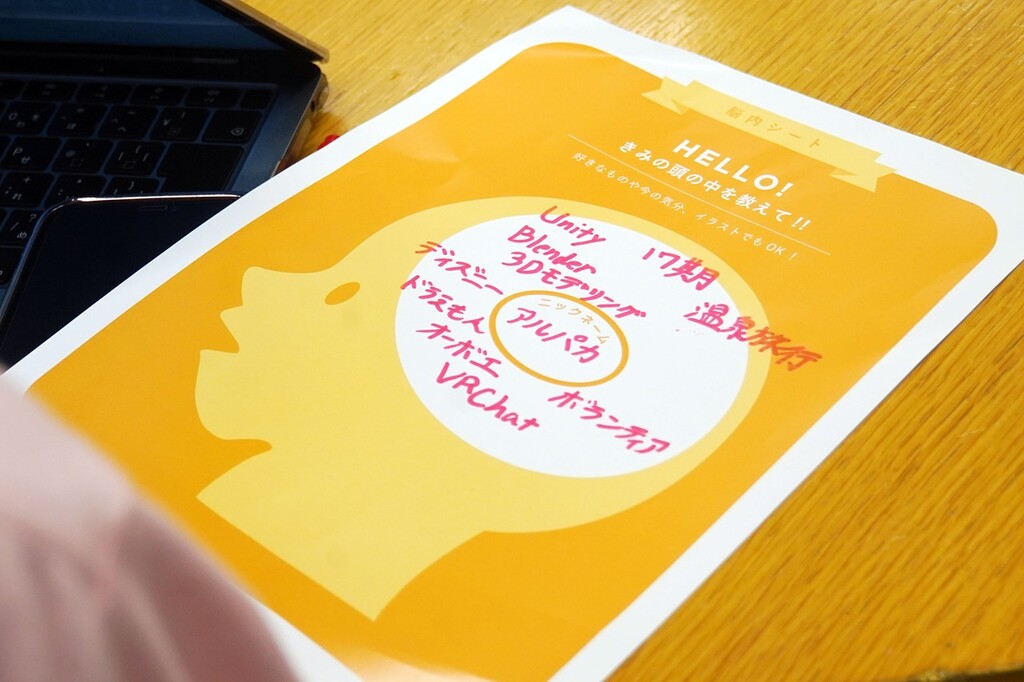 脳内シート
HELLO!
きみの頭の中を教えて!!
好きなものや今の気分、イラストでもOK!
Unity
Blender
3Dモデリング
17期
温泉旅行
ディズニー
ドラえもん
オーボエ
VRChat
ニックネーム
アルパカ
ボランティア